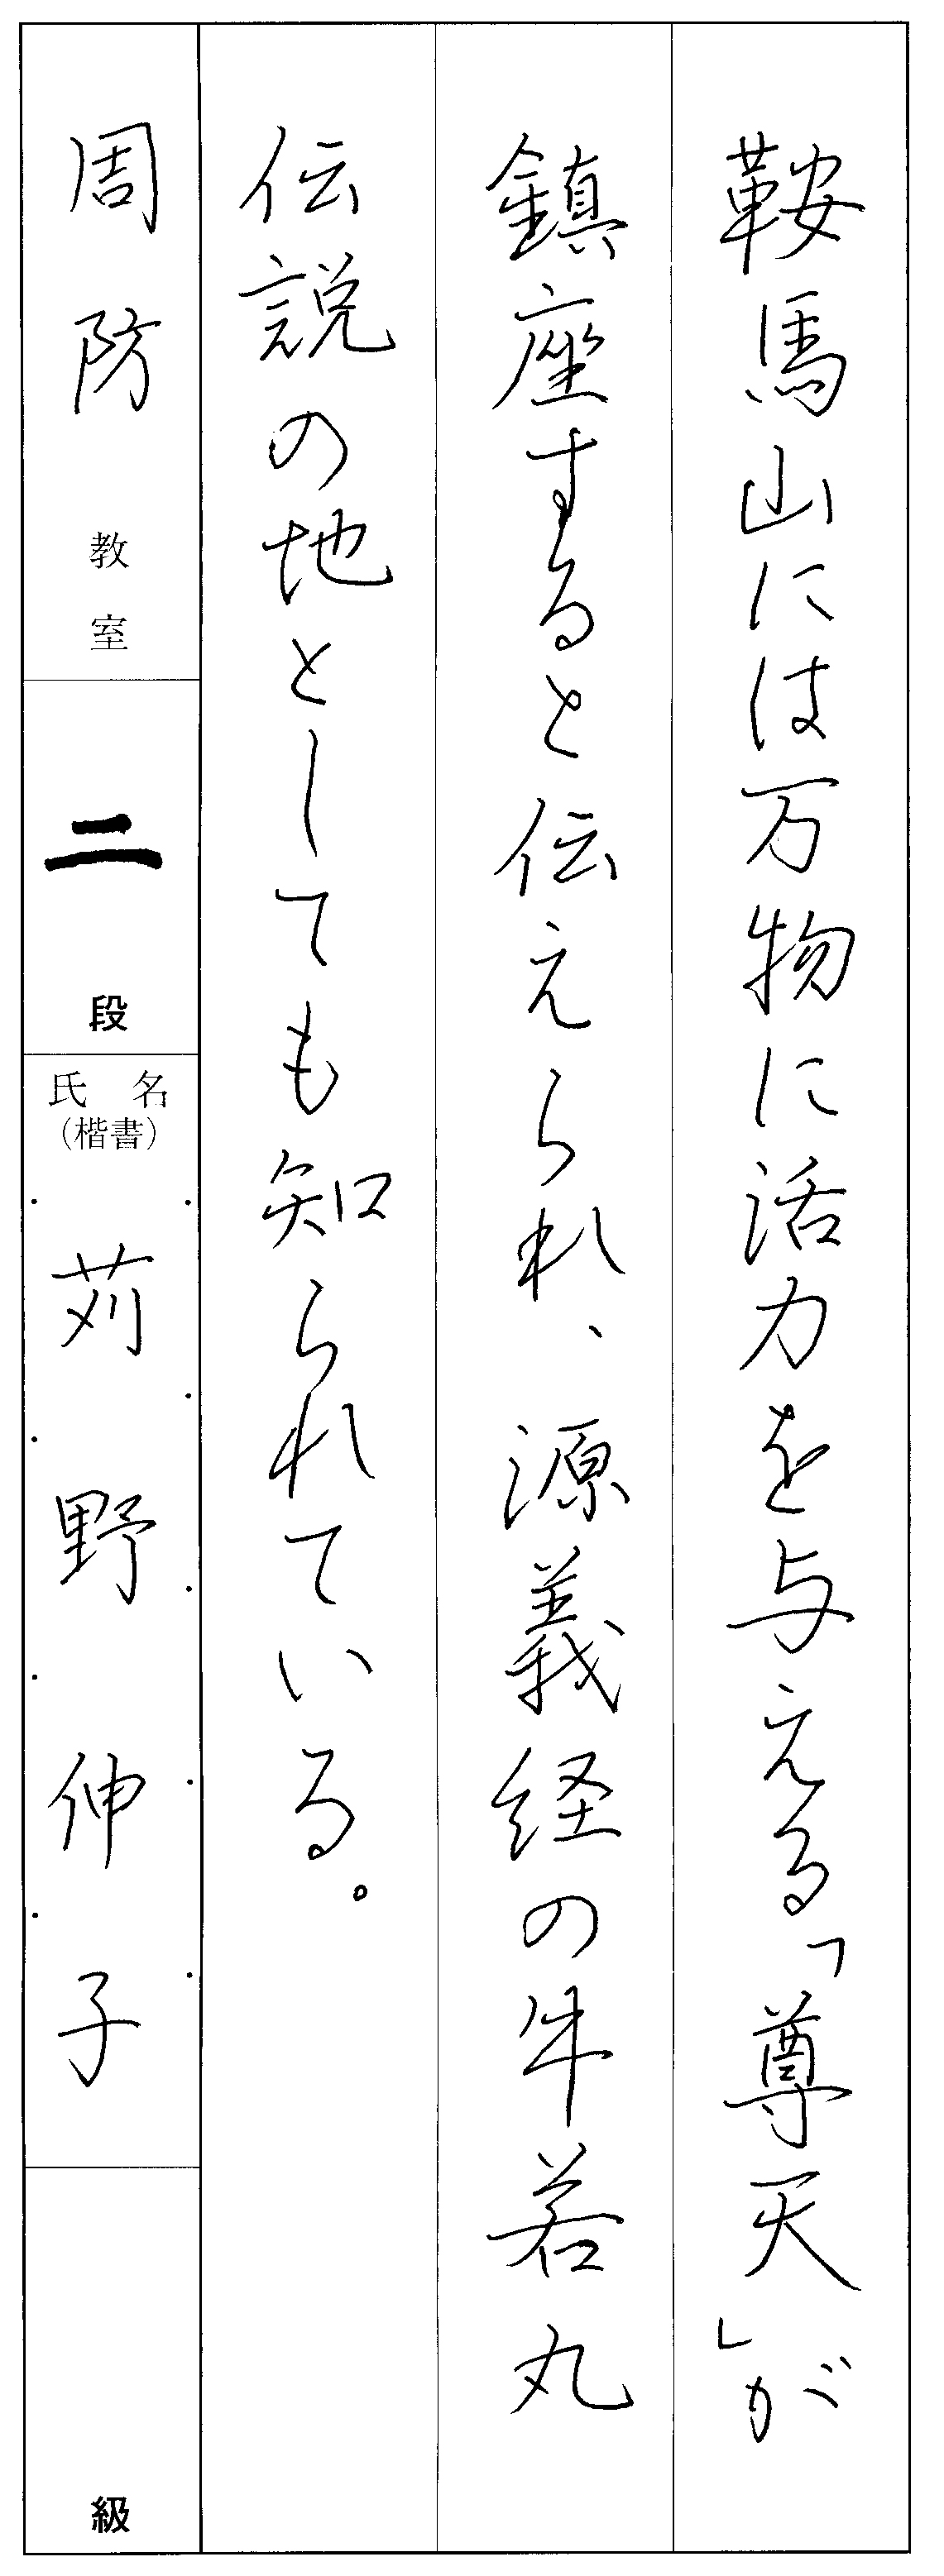 鞍馬山には万物に活力を与える「尊天」が
鎮座すると伝えられ、源義経の牛若丸
伝説の地としても知られている。
周防教室
二段
氏名
（楷書）
苅野伸子
級